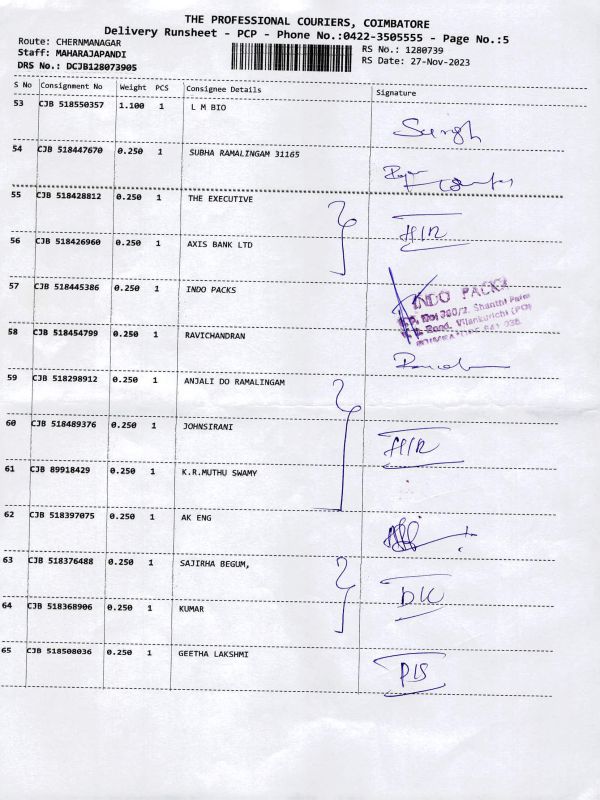 THE PROFESSIONAL COURIERS, COIMBATORE
Delivery Runsheet - PCP - Phone No.:0422-3505555 - Page No.:5
Route: CHERNMANAGAR
Staff: MAHARAJAPANDI
DRS No.: DCJB128073905
RS No.: 1280739
RS Date: 27-Nov-2023
S No Consignment No Weight PCS Consignee Details Signature
53 CJB 518550357 1.100 1 L M BIO
54 CJB 518447670 0.250 1 SUBHA RAMALINGAM 31165
55 CJB 518428812 0.250 1 THE EXECUTIVE
56 CJB 518426960 0.250 1 AXIS BANK LTD
57 CJB 518445386 0.250 1 INDO PACKS
INDO PACKS
58 CJB 518454799 0.250 1 RAVICHANDRAN
59 CJB 518298912 0.250 1 ANJALI DO RAMALINGAM
60 CJB 518489376 0.250 1 JOHNSIRANI
61 CJB 89918429 0.250 1 K.R.MUTHU SWAMY
62 CJB 518397075 0.250 1 AK ENG
63 CJB 518376488 0.250 1 SAJIRHA BEGUM,
64 CJB 518368906 0.250 1 KUMAR
65 CJB 518508036 0.250 1 GEETHA LAKSHMI